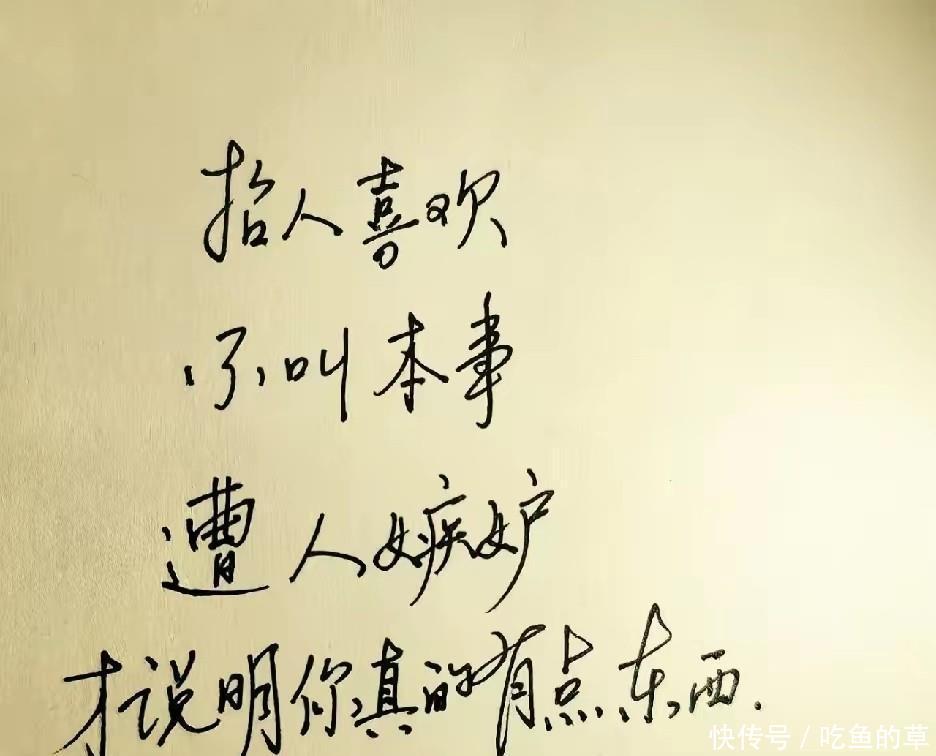 招人喜欢
不叫本事
遭人嫉妒
才说明你真的有点东西.
快传号/吃鱼的草